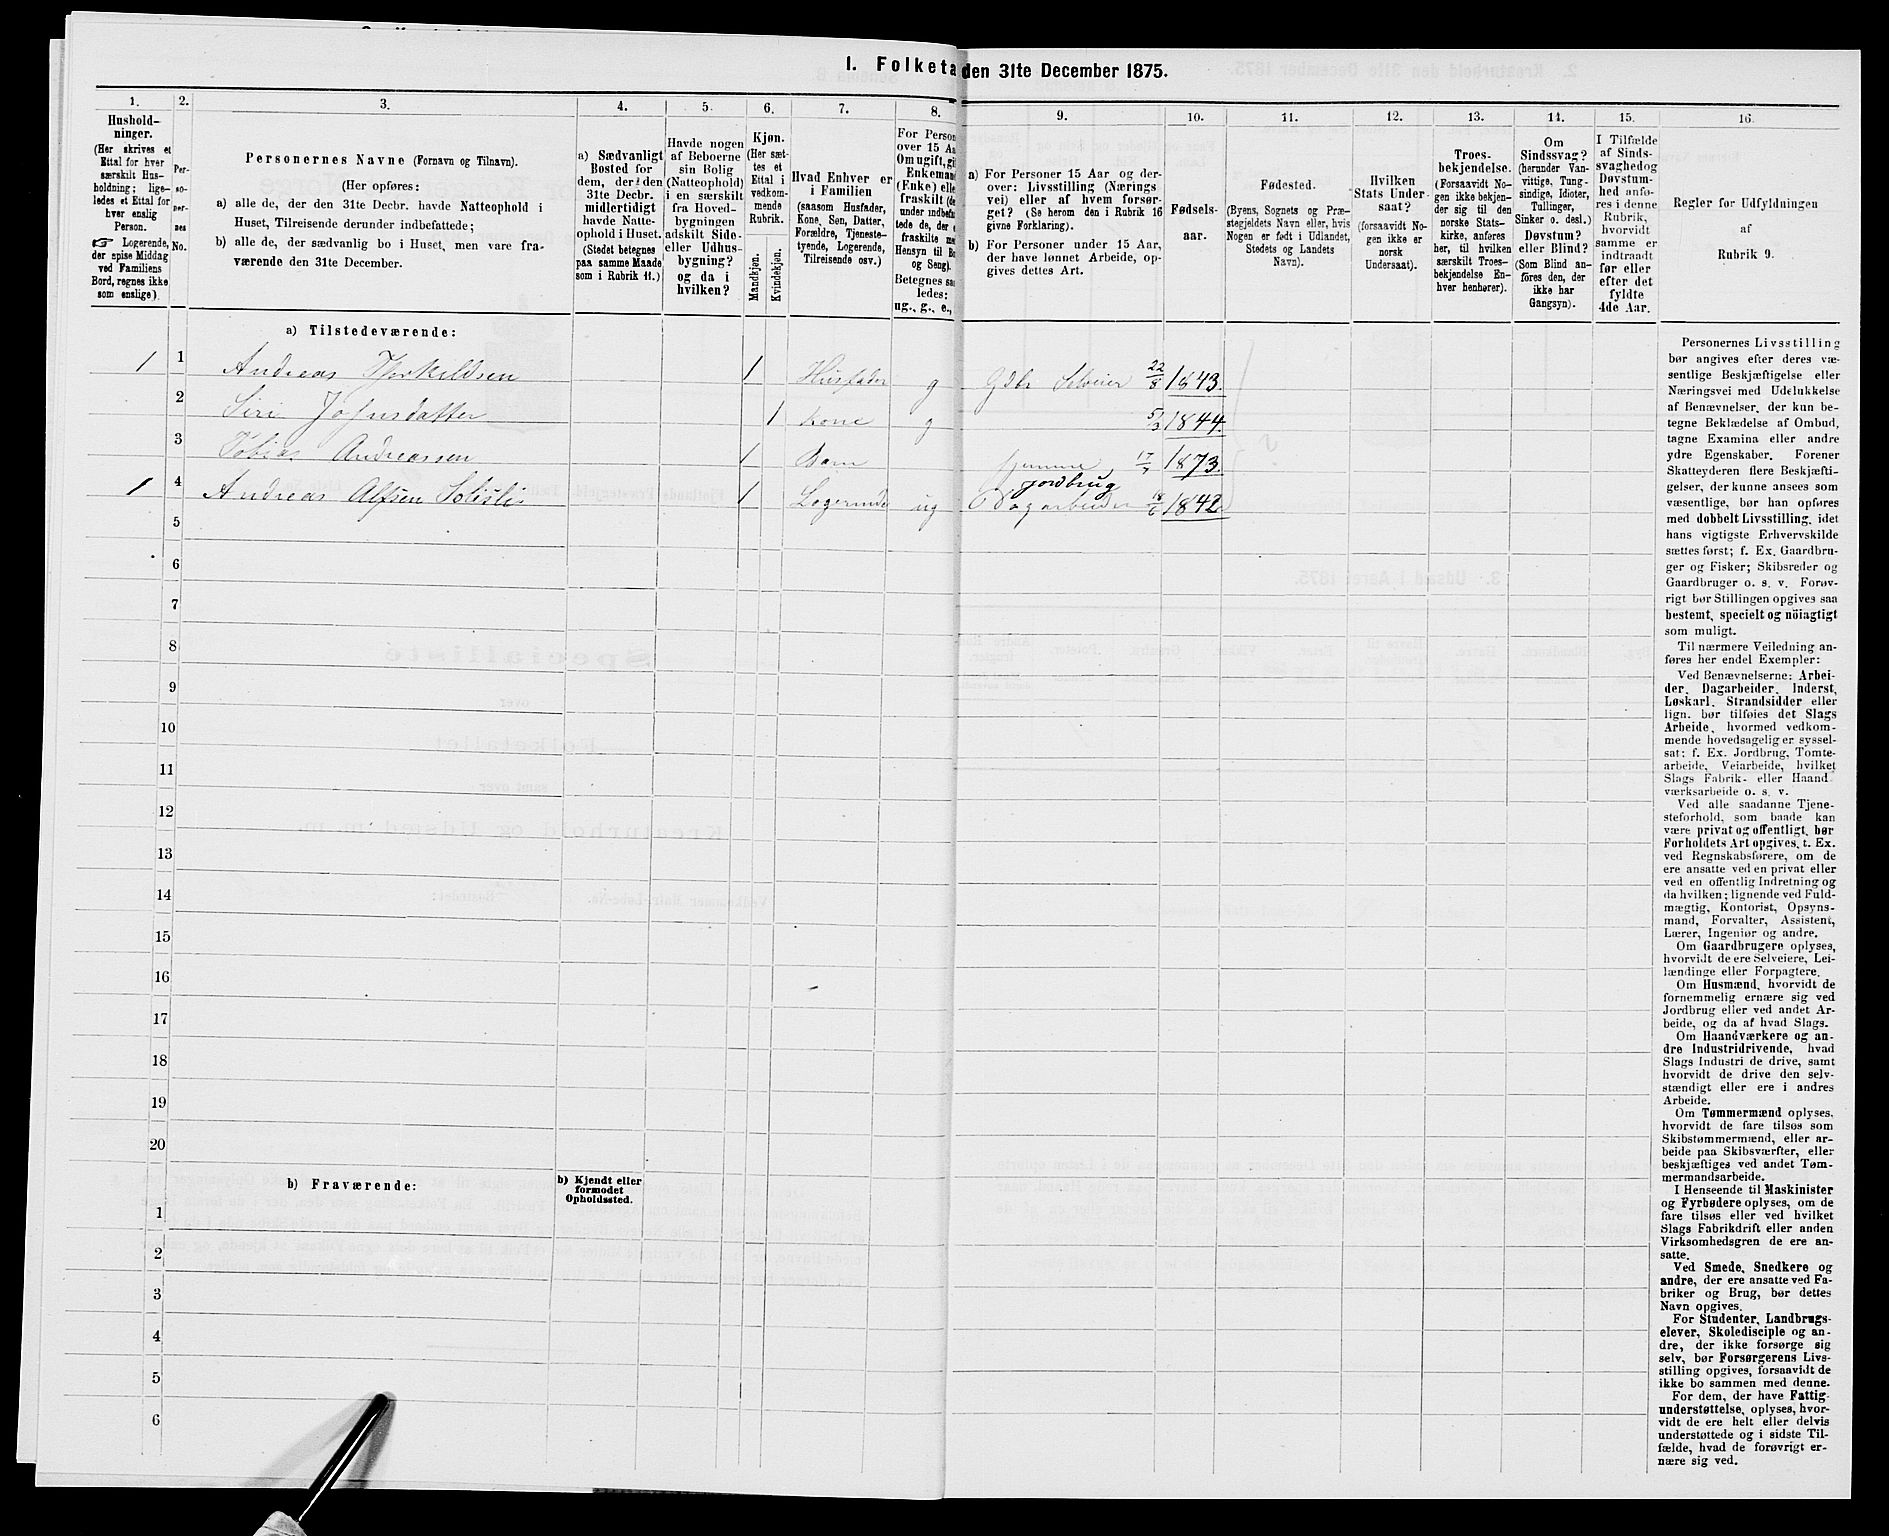 I. Folketa den 31te December 1875.
1.
Hushold-
ninger.
(Her skrives et
Ettal for hver
særskilt Hus-
holdning; lige-
ledes et Ettal for
hver enslig
Person.
☞ Logerende,
der spise Middag
ved Familiens
Bord, regnes ikke
som enslige).
2.
Per-
so-
ner-
nes
No.
3.
Personernes Navne (Fornavn og Tilnavn).
(Her opføres:
a) alle de, der den 31te Decbr. havde Natteophold i
Huset, Tilreisende derunder indbefattede;
b) alle de, der sædvanlig bo i Huset, men vare fra-
værende den 31te December.
4.
a) Sædvanligt
Bosted for
dem, der den
31te Decbr.
midlertidigt
havde Natte-
ophold i Huset.
(Stedet betegnes
paa samme Maade
som i Rubrik 11.)
5.
Havde nogen
af Beboerne
sin Bolig
(Natteophold)
i en særskilt
fra Hoved-
bygningen
adskilt Side-
eller Udhus-
bygning?
og da i
hvilken?
6.
Kjøn.
(Her sæt-
tes et
Ettal i
vedkom-
mende
Rubrik.
Mandkjøn.
Kvindekjøn.
7.
Hvad Enhver er
i Familien
(saasom Husfader,
Kone, Søn, Datter,
Forældre, Tjeneste-
tyende, Logerende,
Tilreisende osv.)
8.
For Person
over 15 Aa
Om ugift, gif
Enkemand
(Enke) elle
fraskilt (de
under indbefa
tede de, der e
fraskilte me
Hensyn til Bo
og Seng).
Betegnes saa
ledes:
ug., g., e.,
9.
a) For Personer 15 Aar og der-
over: Livsstilling (Nærings
vei) eller af hvem forsør-
get? (Se herom den i Rubrik 16
givne Forklaring).
b) For Personer under 15 Aar,
der have lønnet Arbeide, op-
gives dettes Art.
10.
Fødsels-
aar.
11.
Fødested.
(Byens, Sognets og Præ-
stegjeldets Navn eller, hvis
Nogen er født i Udlandet,
Stedets og Landets
Navn).
12.
Hvilken
Stats Under-
saat?
(forsaavidt No-
gen ikke er
norsk
Undersaat).
13.
Troes-
bekjendelse.
(Forsaavidt No-
gen ikke bekjen-
der sig til den
norske Stats-
kirke, anføres
her, til hvilken
særskilt Troes-
bekjendelse En-
hver henhører).
14.
Om
Sindssvag?
(herunder Van-
vittige, Tung-
sindige, Idioter,
Tullinger,
Sinker o. desl.)
Døvstum?
eller Blind?
(Som Blind an-
føres den, der
ikke har
Gangsyn).
15.
I Tilfælde
af Sinds-
svaghed og
Døvstum-
hed anfø-
res i denne
Rubrik,
hvorvidt
samme er
indtraadt
før eller
efter det
fyldte
4de Aar.
16.
Regler for Udfyldningen
af
Rubrik 9.
a) Tilstedeværende:
1 1 Andreas Tjerkildsen 1 Husfader g Gdbr Selveier 22/8 1843.
2 Siri Johnsdatter 1 Kone g 5/3 1844.
3 Tobias Andreassen 1 Barn hjemme 17/7 1873.
jordbrug
1 4 Andreas Alfsen 1 Logerende ug Dagarbeider 18/6 1842
5
6
7
8
9
10
11
12
13
14
15
16
17
18
19
20
b) Fraværende:
b) Kjendt eller
formodet
Opholdssted.
1
2
3
4
5
6
Personernes Livsstilling
bør angives efter deres væ-
sentlige Beskjæftigelse eller
Næringsvei med Udelukkelse
af Benævnelser, der kun be-
tegne Beklædelse af Ombud,
tagne Examina eller andre
ydre Egenskaber. Forener
Skatteyderen flere Beskjæfti-
gelser, der kunne ansees som
væsentlige, bør han opføres
med dobbelt Livsstilling, idet
hans vigtigste Erhvervskilde
sættes først; f. Ex. Gaardbru-
ger og Fisker; Skibsreder og
Gaardbruger o. s. v. Forøv-
rigt bør Stillingen opgives saa
bestemt, specielt og nöiagtigt
som muligt.
Til nærmere Veiledning an-
føres her endel Exempler:
Ved Benævnelserne: Arbei-
der, Dagarbeider, Inderst,
Løskarl, Strandsidder eller
lign. bør tilføies det Slags
Arbeide, hvormed vedkom-
mende hovedsagelig er syssel-
sat; f. Ex. Jordbrug, Tomte-
arbeide, Veiarbeide, hvilket
Slags Fabrik- eller Haand
værksarbeide o. s. v.
Ved alle saadanne Tjene-
steforhold, som baade kan
være privat og offentligt, bør
Forholdets Art opgives, t. Ex.
ved Regnskabsførere, om de
ere ansatte ved en privat eller
ved en offentlig Indretning og
da hvilken; lignende ved Fuld-
mægtig, Kontorist, Opsyns-
mand, Forvalter, Assistent,
Lærer, Ingeniør og andre.
Om Gaardbrugere oplyses,
hvorvidt de ere Selveiere, Lei-
lændinge eller Forpagtere.
Om Husmænd, hvorvidt de
fornemmelig ernære sig ved
Jordbrug eller ved andet Ar-
beide, og da af hvad Slags.
Om Haandværkere og an-
dre Industridrivende, hvad
Slags Industri de drive, samt
hvorvidt de drive den selv-
stændigt eller ere i andres
Arbeide.
Om Tømmermænd oplyses,
hvorvidt de fare tilsøs som
Skibstømmermænd, eller ar-
beide paa Skibsværfter, eller
beskjæftiges ved andet Tøm-
mermandsarbeide.
I Henseende til Maskinister
og Fyrbødere oplyses, om de
fare tilsøs eller ved hvilket
Slags Fabrikdrift eller anden
Virksomhedsgren de ere an-
satte.
Ved Smede, Snedkere og
andre, der ere ansatte ved Fa-
briker og Brug, bør dettes
Navn opgives.
For Studenter, Landbrugs-
elever, Skoledisciple og an-
dre, der ikke forsørge sig
selv, bør Forsørgerens Livs-
stilling opgives, forsaavidt de
ikke bo sammen med denne.
For dem, der have Fattig-
understøttelse, oplyses, hvor-
vidt de ere helt eller delvis
understøttede og i sidste Til-
fælde, hvad de forøvrigt er-
nære sig ved.